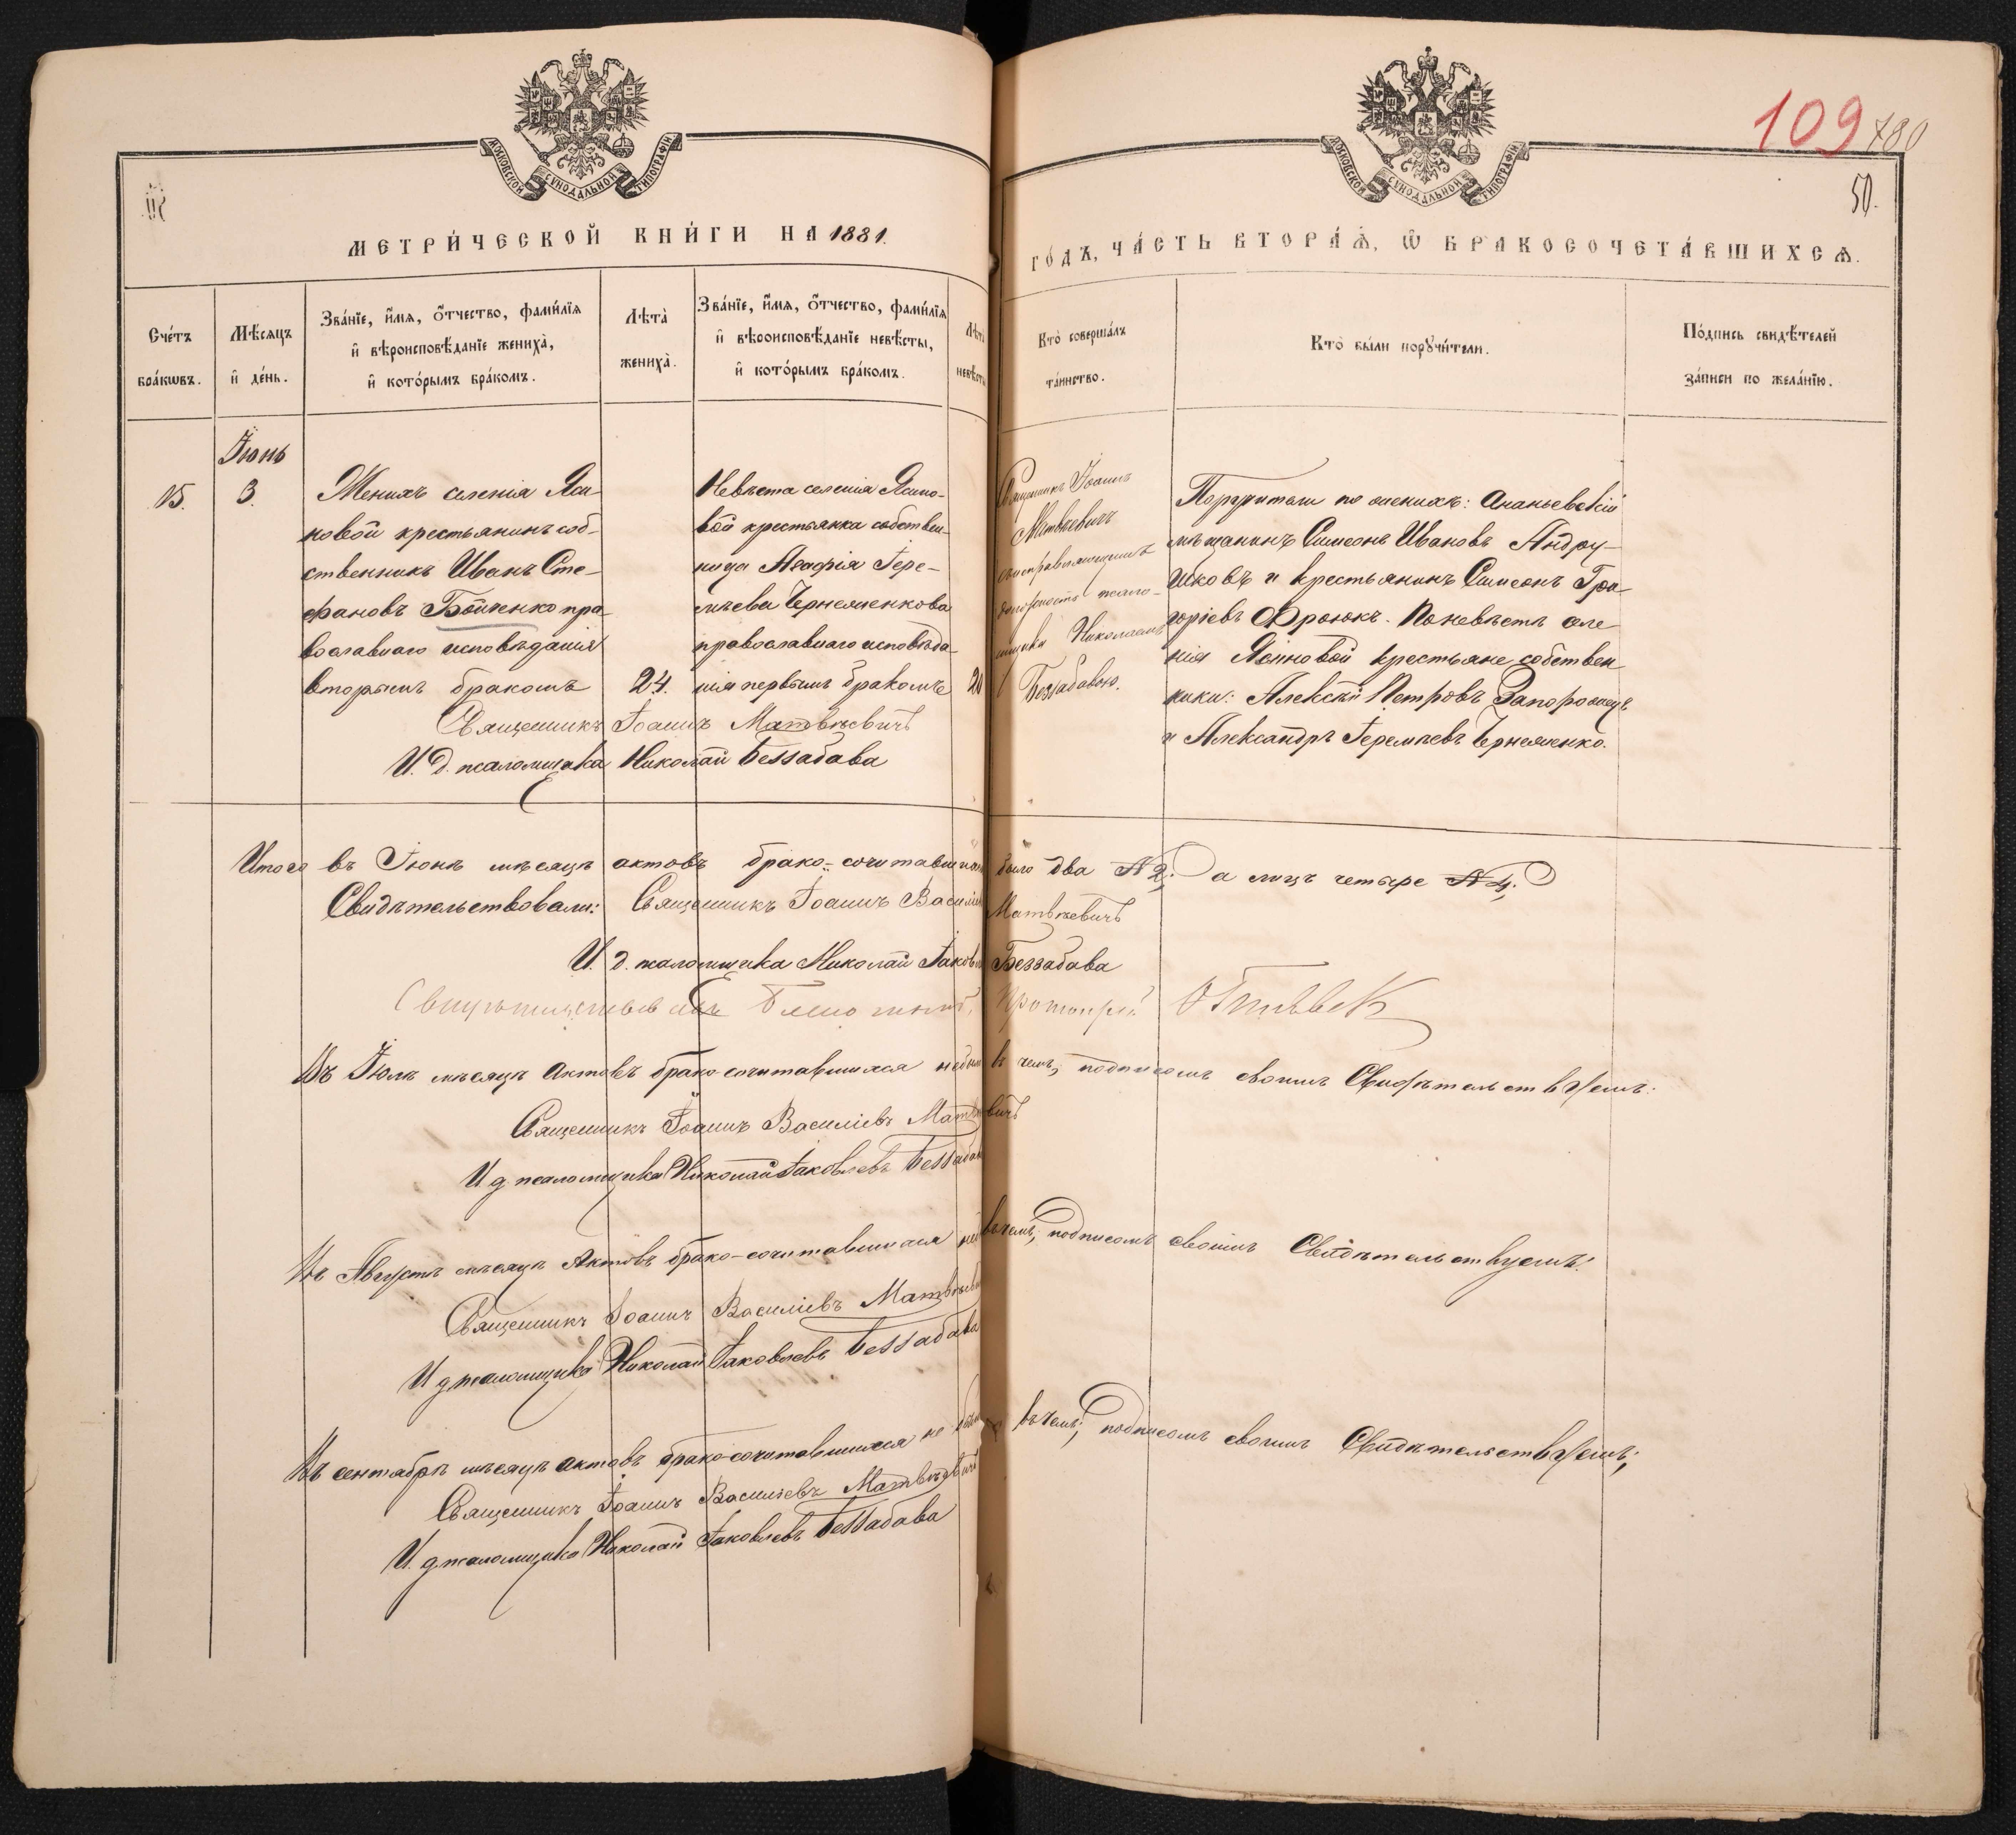 МОСКОВСКОЙ СУНОДАЛЬНОЙ ТИПОГРАФІИ
МОСКОВСКОЙ СУНОДАЛЬНОЙ ТИПОГРАФІИ
109
780
50.
МЕТРИ́ЧЕСКОЙ КНИ́ГИ НА 1881.
ГО́ДЪ, ЧА́СТЬ ВТОРА́Ѧ, Ѡ БРАКОСОЧЕТА́ВШИХСѦ.
Сче́тъ бра́кѡвъ.
Мѣ́сяцъ и҆ де́нь.
Зва́нїе, и҆́мѧ, ѻ҆́тчество, фами́лїѧ
и҆ вѣроисповѣ́данїе жениха̀,
и҆ кото́рымъ бра́комъ.
Лѣ́та̀ жениха̀.
Зва́нїе, и҆́мѧ, ѻ҆́тчество, фами́лїѧ
и҆ вѣроисповѣ́данїе невѣ́сты,
и҆ кото́рымъ бра́комъ.
Лѣта̀ невѣ́сты
Кто̀ соверша́лъ та́инство.
Кто̀ бы́ли порꙋчи́тели.
По́дпись свидѣ́телей
за́писи по жела́нїю.
Іюнь
15. 3.
Женихъ селенія Яси-
новой крестьянинъ соб-
ственникъ Иванъ Сте-
фановъ Бойченко пра-
вославнаго исповѣданія
вторымъ бракомъ
24.
Невѣста селенія Ясино-
вой крестьянка собствен-
ница Агафія Іере-
міева Чернеженкова
православнаго исповѣда-
нія первымъ бракомъ
20
Священникъ Іоаннъ
Матвѣевичъ
съ исправляющимъ
должность псало-
мщика Николаемъ
Беззабавою.
Поручители по женихѣ: Ананьевскій
мѣщанинъ Симеонъ Ивановъ Андру-
шковъ и крестьянинъ Симеонъ Гри-
горіевъ Фроюкъ. По невѣстѣ селе
нія Ясиновой крестьяне собствен
ники: Алексѣй Петровъ Запорожецъ
и Александръ Іереміевъ Чернеженко.
Священникъ Іоаннъ Матвѣевичъ
И. д. псаломщика Николай Беззабава
Итого въ Іюнѣ мѣсяцѣ актовъ брако-сочитавшихся было два № 2; а лицъ четыре № 4;
Свидѣтельствовали: Священникъ Іоаннъ Василіевъ Матвѣевичъ
И. д. псаломщика Николай Іаковлевъ Беззабава
Свидѣтельствовалъ Протоіерей
Въ Іюлѣ мѣсяцѣ актовъ брако-сочитавшихся небыло въ чемъ; подписомъ своимъ Свидѣтельствуемъ:
Священникъ Іоаннъ Василіевъ Матвѣевичъ
И д псаломщика Николай Іаковлевъ Беззабава
Въ Августѣ мѣсяцѣ Актовъ брако-сочитавшихся не въ чемъ; подписомъ своимъ Свидѣтельствуемъ:
Священникъ Іоаннъ Василіевъ Матвѣевичъ
И д псаломщика Николай Іаковлевъ Беззабава
Въ сентябрѣ мѣсяцѣ актовъ брако-сочитавшихся не было въ чемъ; подписомъ своимъ Свидѣтельствуемъ;
Священникъ Іоаннъ Василіевъ Матвѣевичъ
И. д псаломщика Николай Іаковлевъ Беззабава